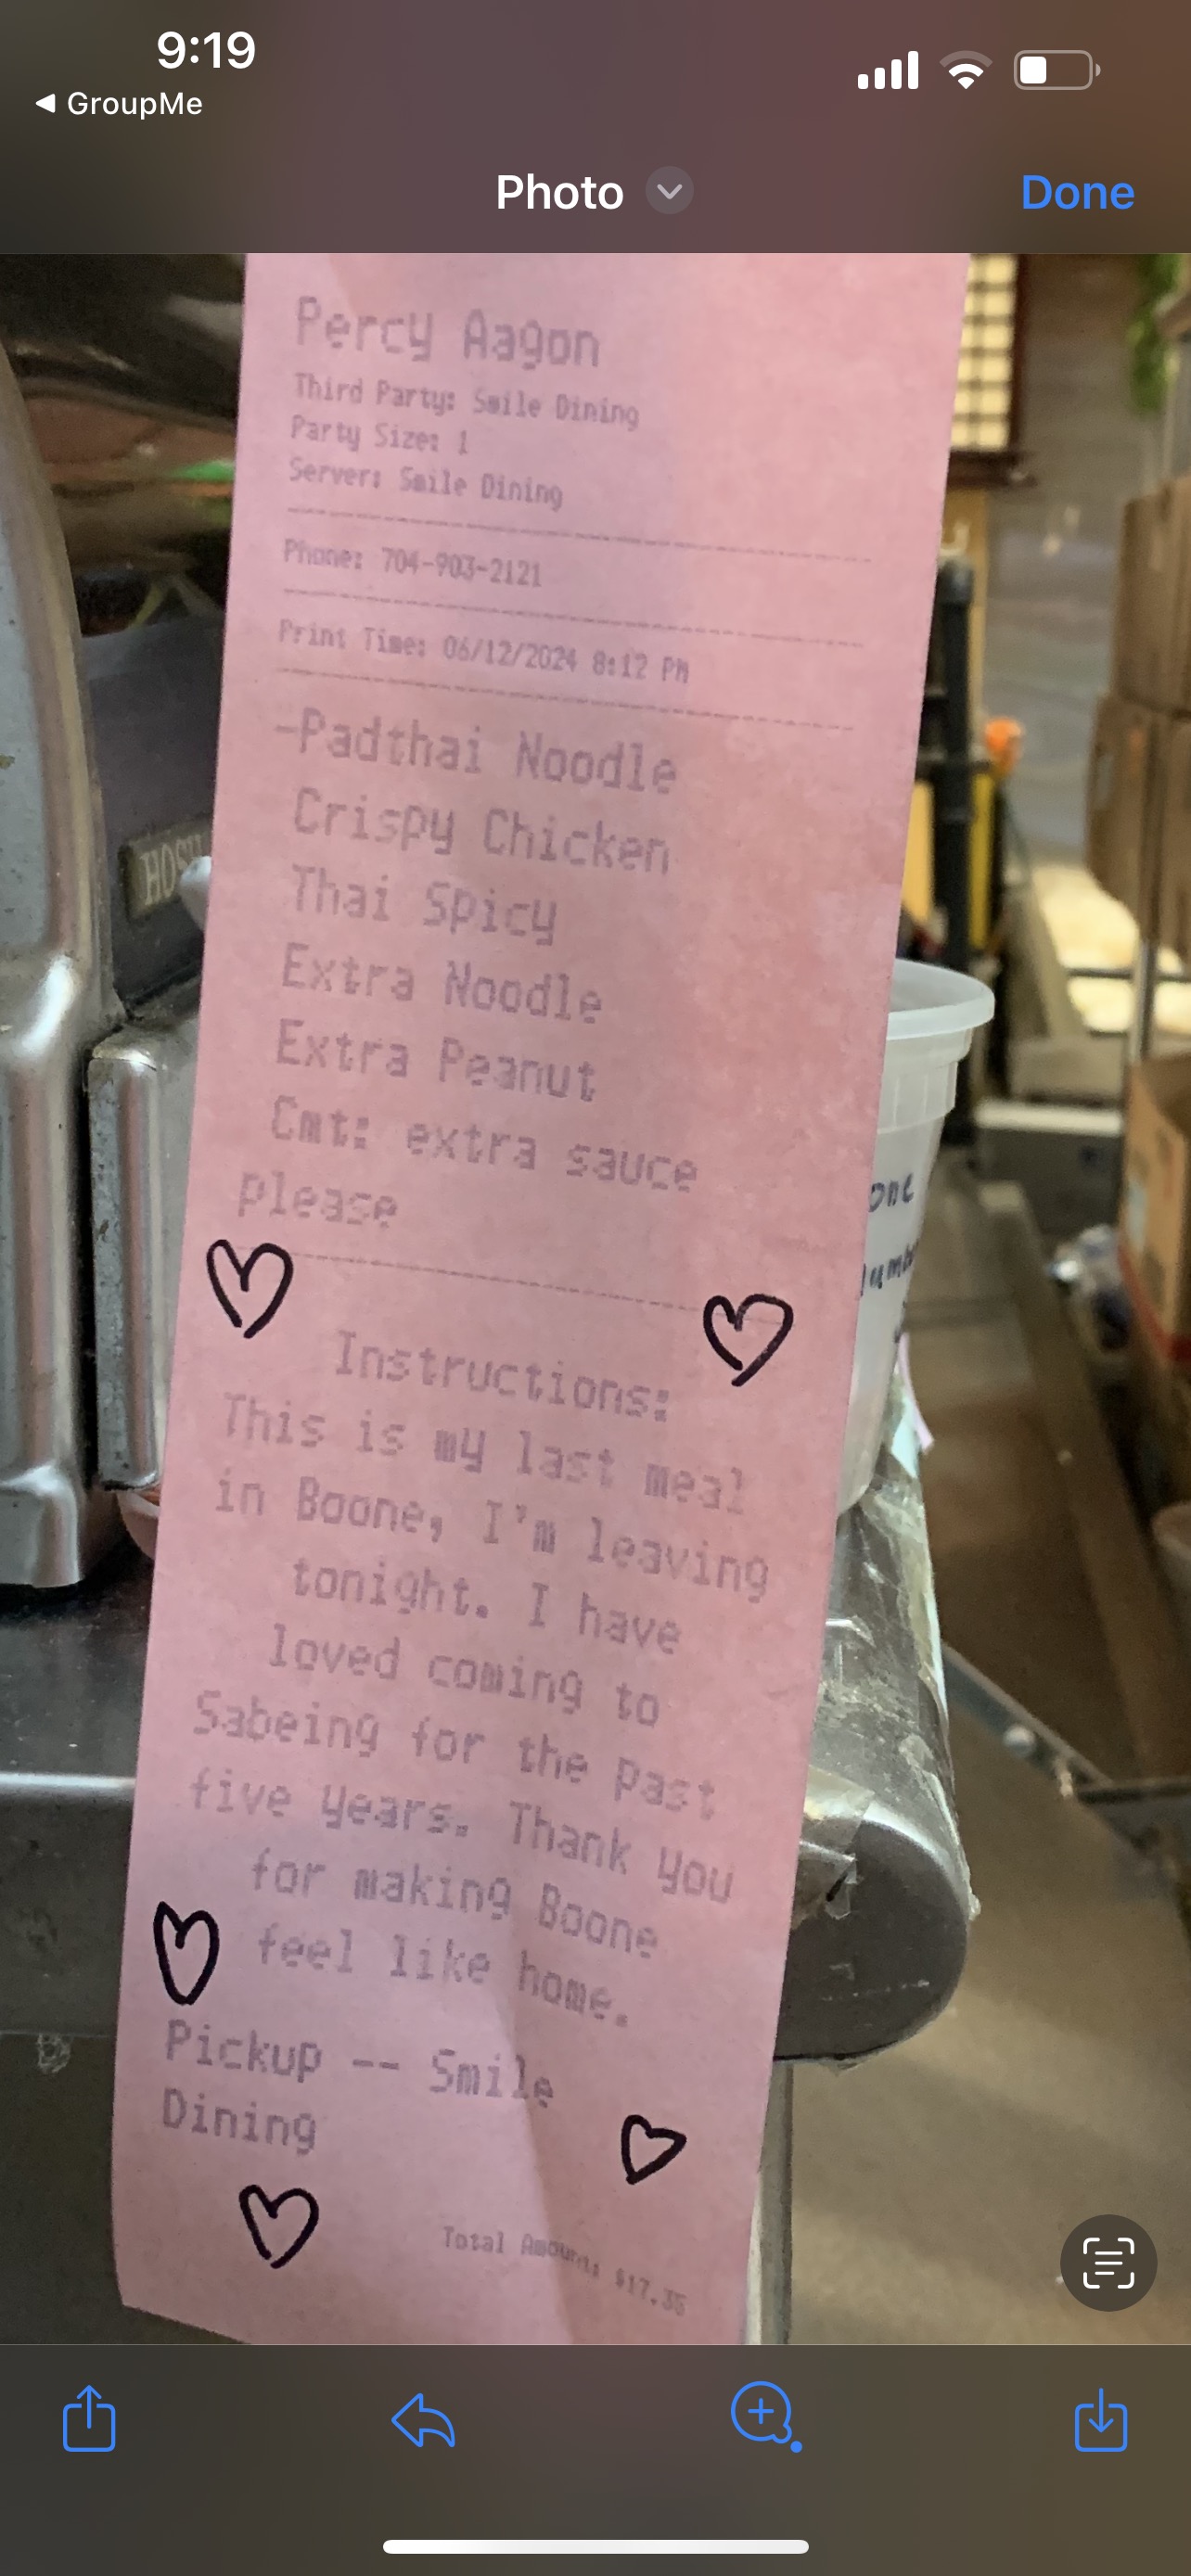 9:19
GroupMe
Photo
Done
Percy Aagon
Third Party: Smile Dining
Party Size: 1
Server: Smile Dining
Phone: 704-903-2121
Print Time: 06/12/2024 8:12 PM
-Padthai Noodle
Crispy Chicken
Thai Spicy
Extra Noodle
Extra Peanut
Cmt: extra sauce
please
Instructions:
This is my last meal
in Boone, I'm leaving
tonight. I have
loved coming to
Sabeing for the past
five years. Thank you
for making Boone
feel like home.
Pickup -- Smile
Dining
Total Amount: $17.35